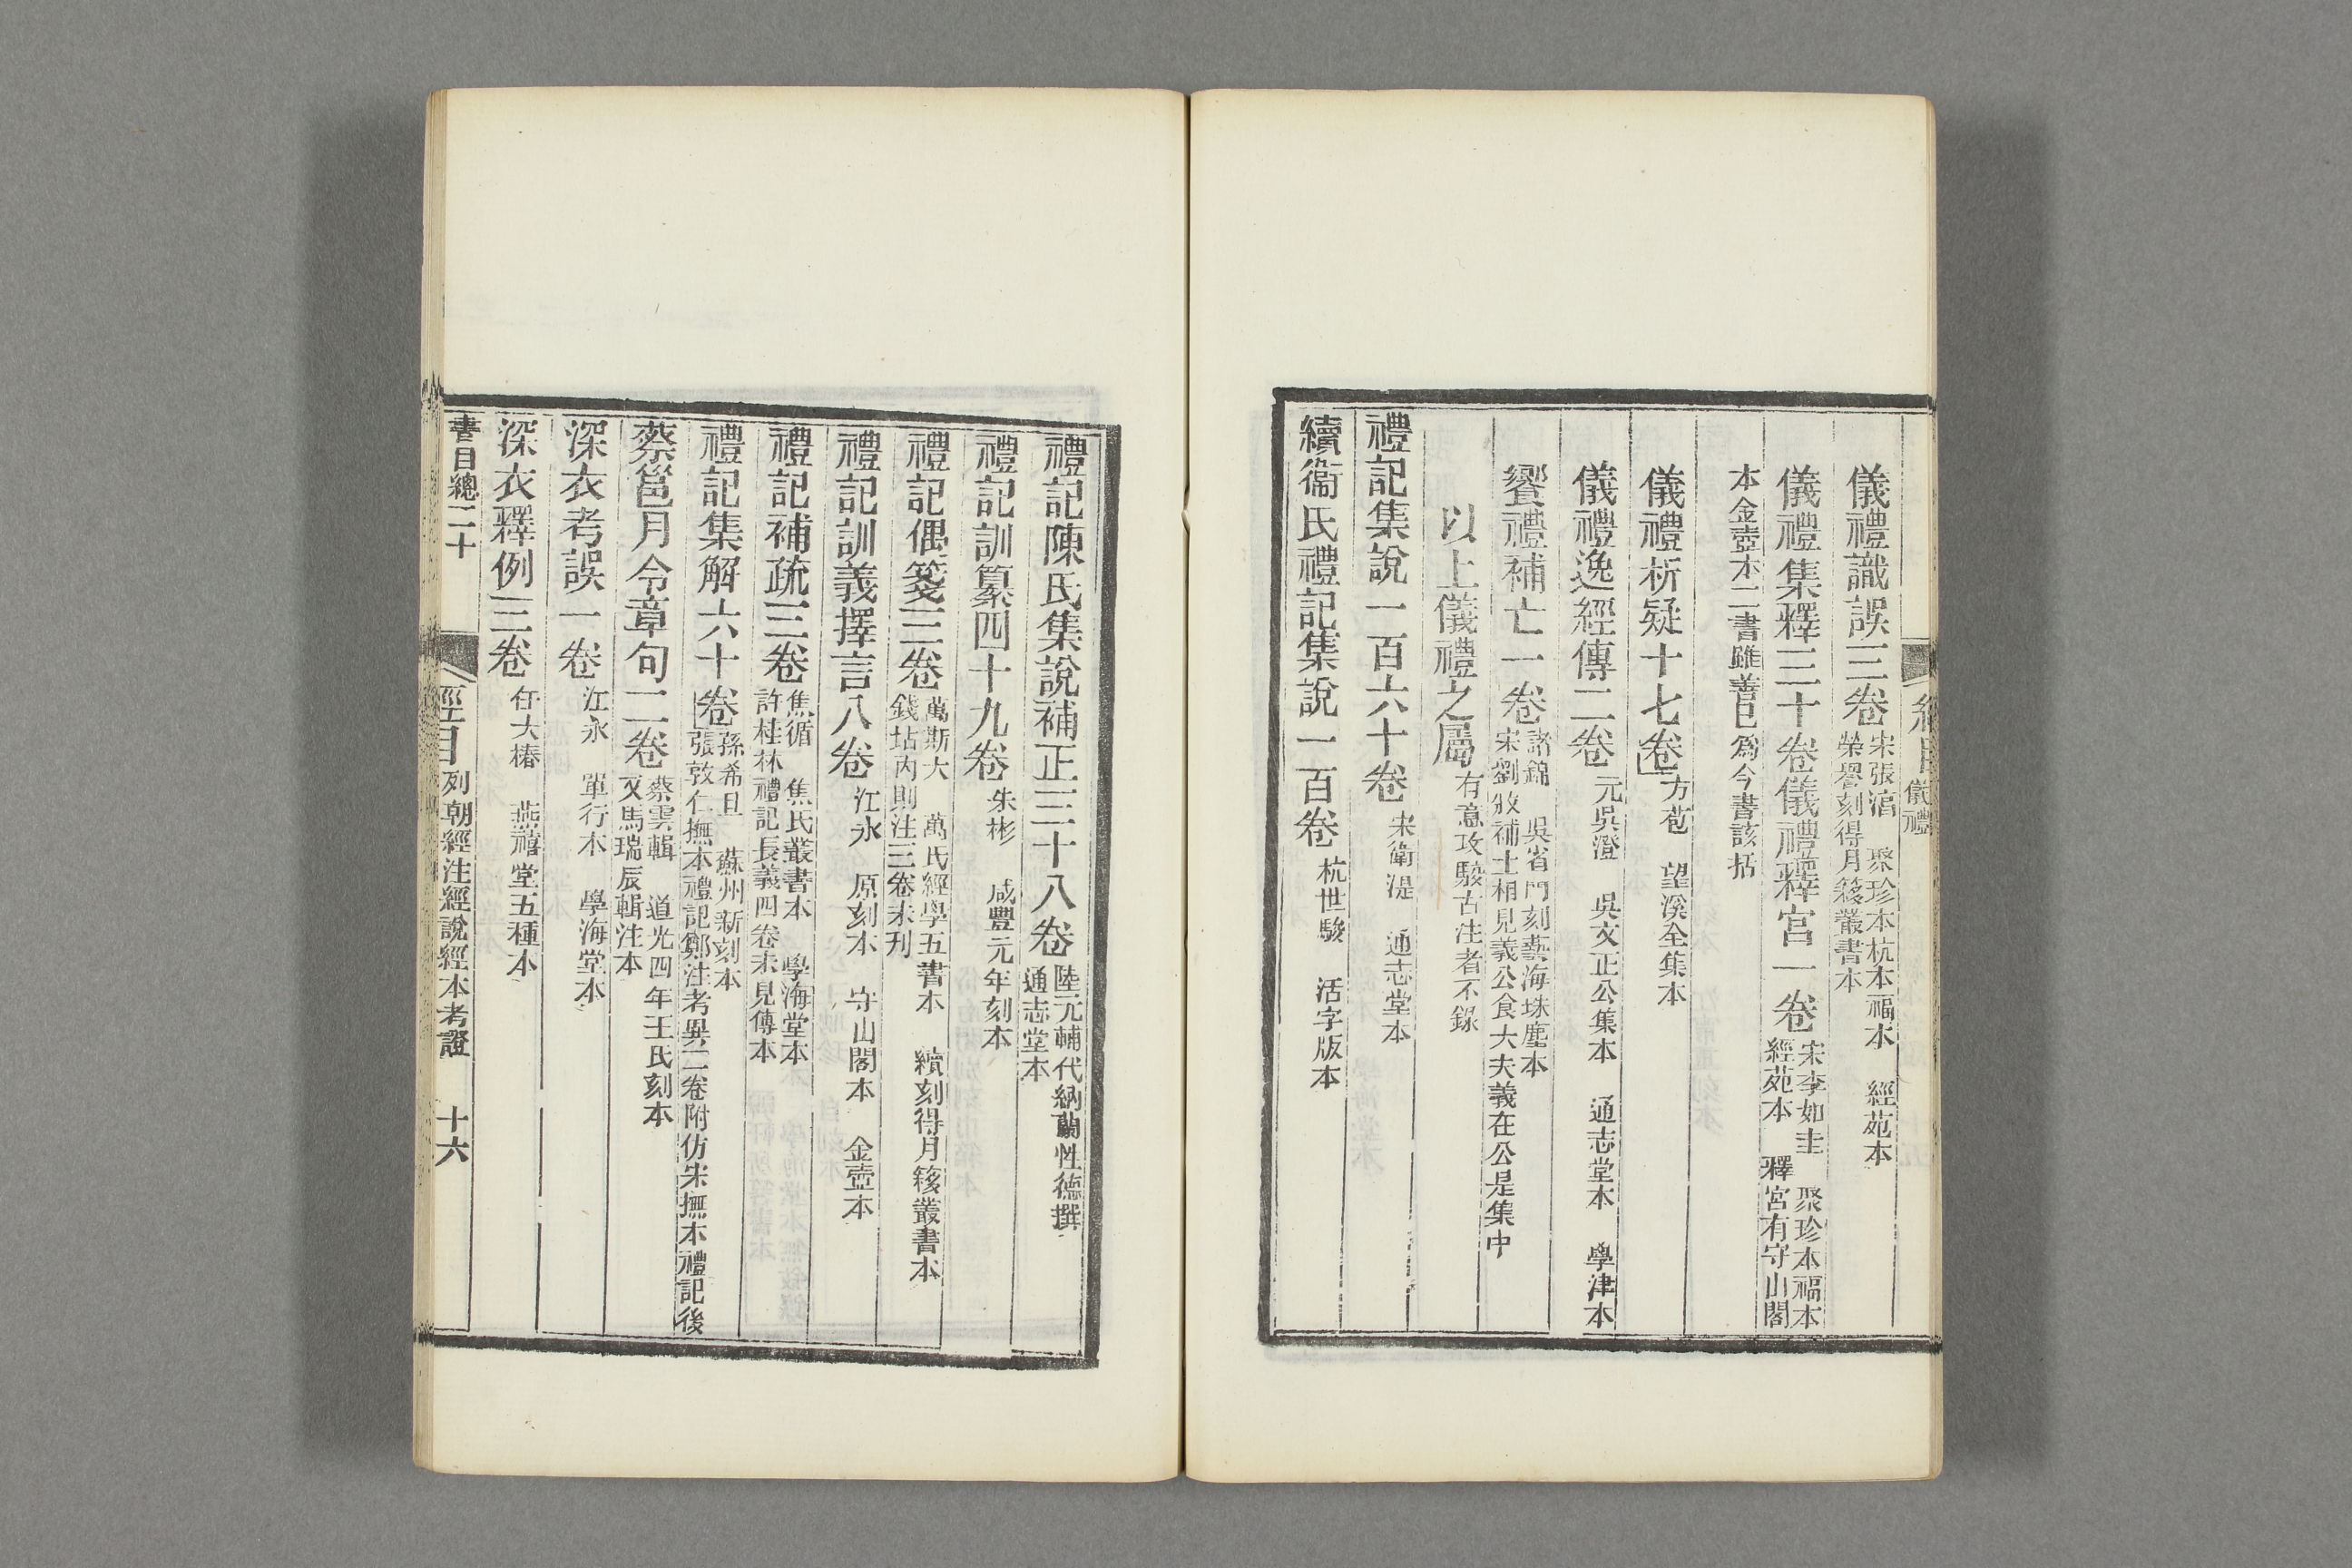 儀禮
儀禮識誤三卷宋張淳 聚珍本杭本福本 經苑本
榮譽刻得月簃叢書本
儀禮集釋三十卷儀禮釋宮一卷宋李如圭 聚珍本福本
經苑本 釋宮有守山閣
本金壺本二書雖善已爲今書該括
儀禮析疑十七卷方苞 望溪全集本
儀禮逸經傳二卷元吳澄 吳文正公集本 通志堂本 學津本
饗禮補亡一卷諸錦 吳省蘭刻藝海珠塵本
宋劉攽補士相見義公食大夫義在公是集中
以上儀禮之屬有意攻駮古注者不錄
禮記集說一百六十卷宋衞湜 通志堂本
續衞氏禮記集說一百卷杭世駿 活字版本
禮記陳氏集說補正三十八卷陸元輔代納蘭性德撰
通志堂本
禮記訓纂四十九卷朱彬 咸豐元年刻本
禮記偶箋三卷萬斯大 萬氏經學五書本 續刻得月簃叢書本
錢坫內則注三卷未刊
禮記訓義擇言八卷江永 原刻本 守山閣本 金壺本
禮記補疏三卷焦循 焦氏叢書本 學海堂本
許桂林禮記長義四卷未見傳本
禮記集解六十卷孫希旦 蘇州新刻本
張敦仁撫本禮記鄭注考異二卷附仿宋撫本禮記後
蔡邕月令章句二卷蔡雲輯 道光四年王氏刻本
又馬瑞辰輯注本
深衣考誤一卷江永 單行本 學海堂本
深衣釋例三卷任大椿 燕禧堂五種本
書目總二十 經目 列朝經注經說經本考證 十六